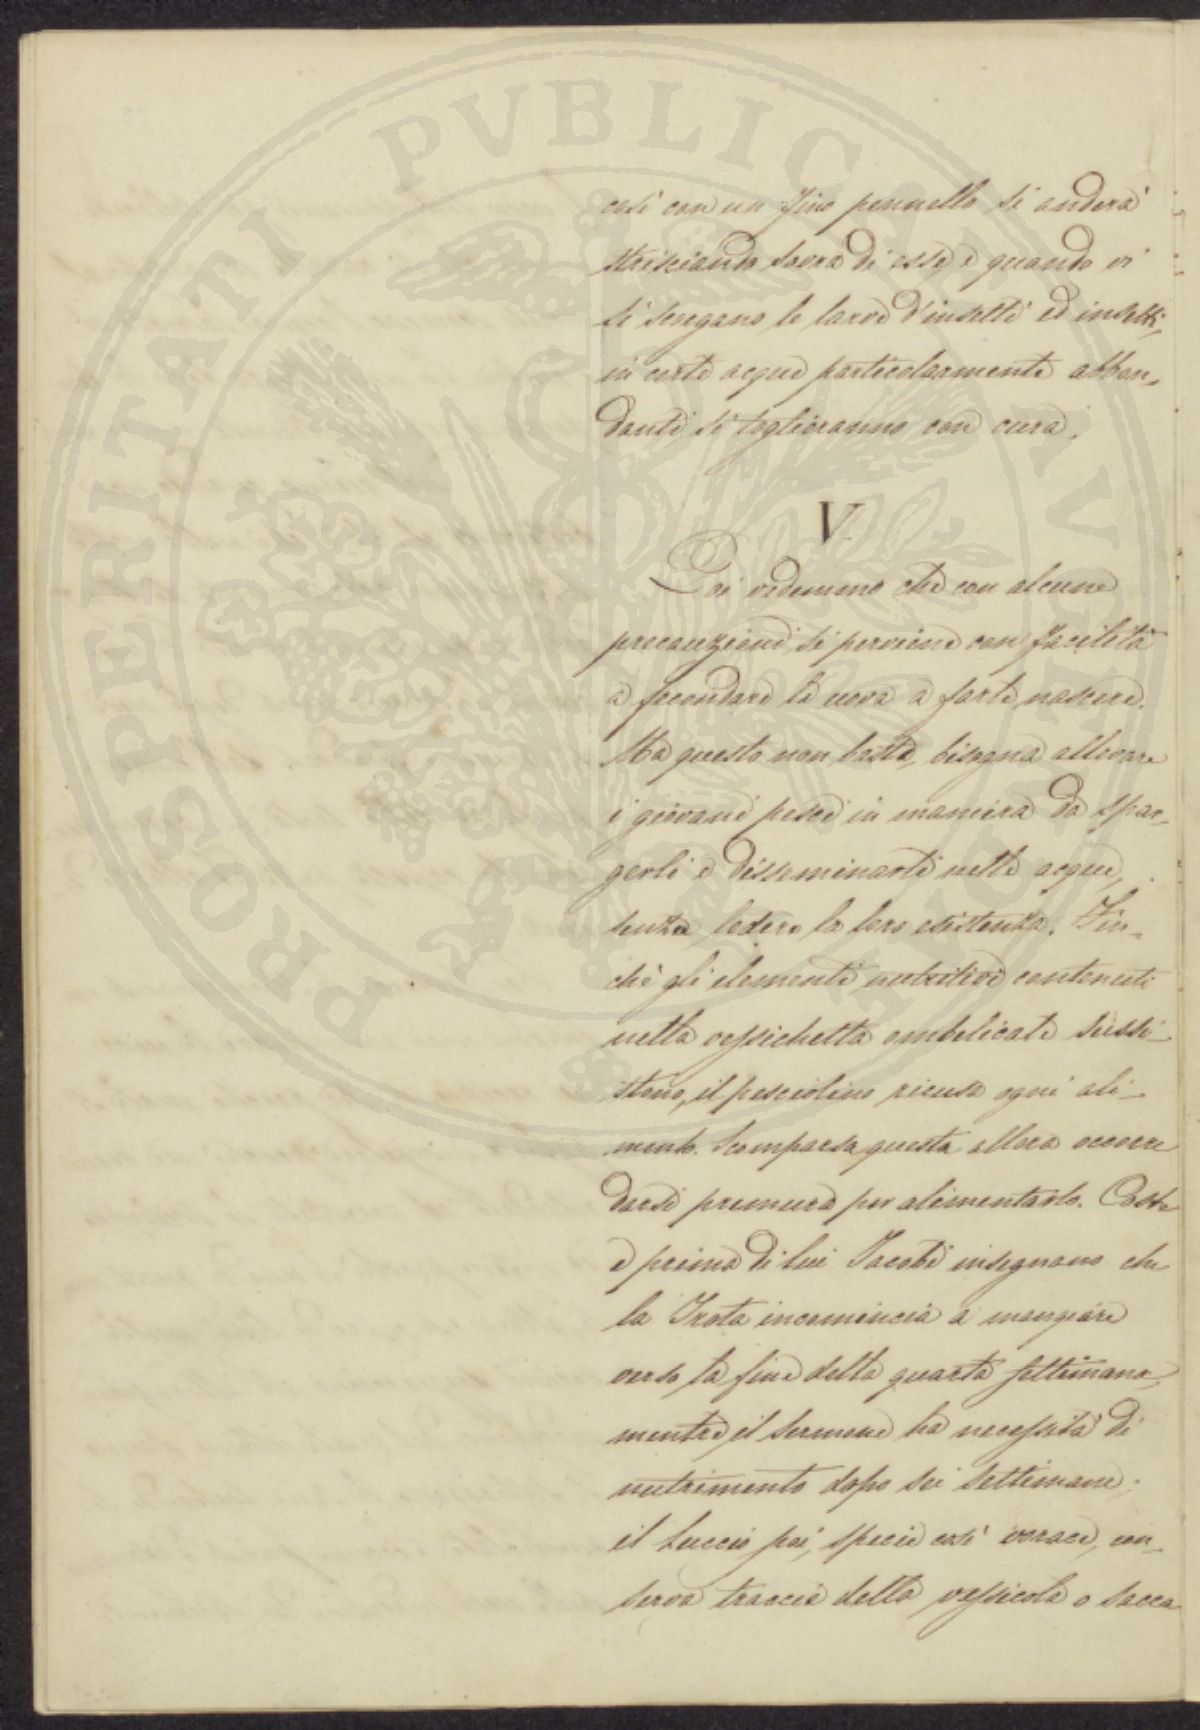 PROSPERITATI PVBLICAE AVGENDAE
così con un fino pennello si anderà
strisciando sovra di esse e quando vi
si scegano le larve d'insetti ed insetti,
in certe acque particolarmente abbon-
danti si toglieranno con cura.
V.
Poi vedemmo che con alcune
precauzioni si perviene con facilità
a fecondare le uova a farle nascere.
Ma questo non basta, bisogna allevare
i giovani pesci in maniera da spar-
gerli e disseminarli nelle acque,
senza ledere la loro esistenza. Fin-
chè gli elementi nutritivi contenuti
nella vessichetta ombelicale sussi-
stono, il pesciolino ricusa ogni ali-
mento. Scomparsa questa allora occorre
darsi premura per alimentarlo. Coste
e prima di lui Jacobi insegnano che
la Trota incomincia a mangiare
verso la fine della quarta settimana,
mentre il Sermone ha necessità di
nutrimento dopo sei settimane;
il Luccio poi, specie così vorace, con-
serva traccie della vessicola o sacca